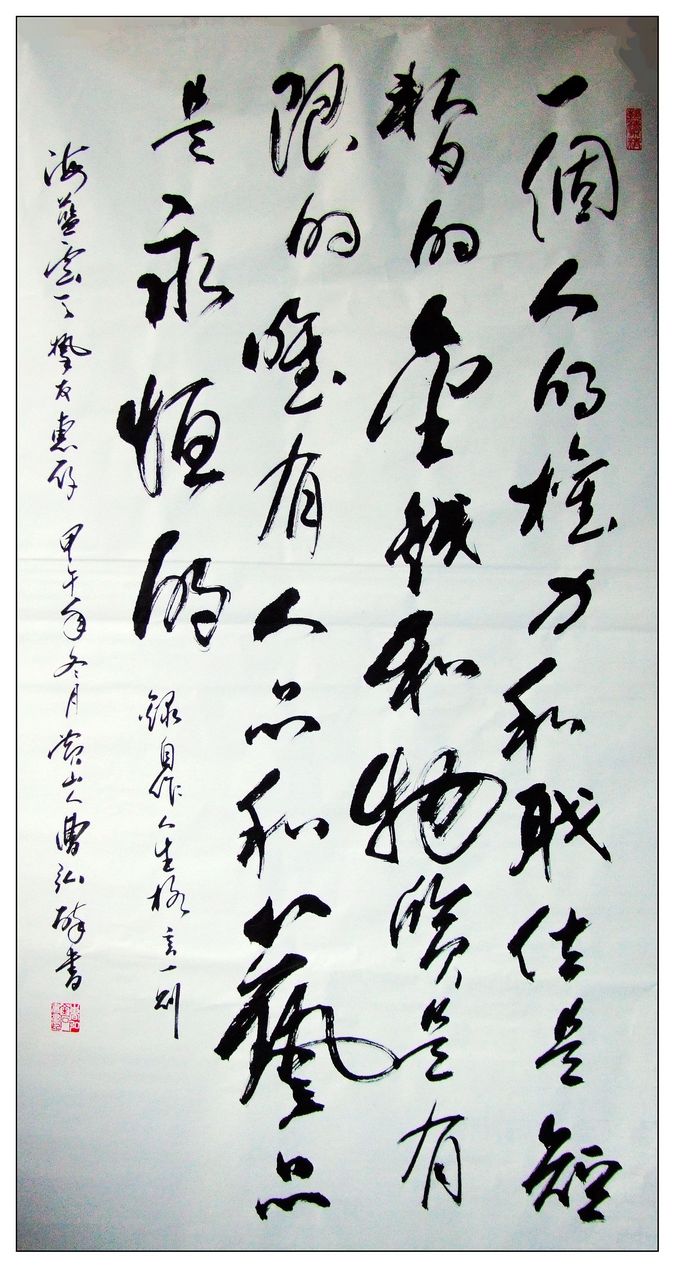 一個人的權力和職位是短
暫的金錢和物質是有
限的唯有人品和藝品
是永恒的 錄自作人生格言一則
海藍雲天藝友惠存 甲午年冬月 山人曹弘 書